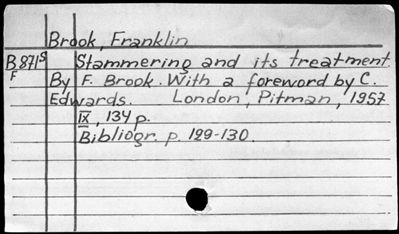 Brook, Franklin
B871S Stammering and its treatment.
F By F. Brook. With a foreword by C.
Edwards. London, Pitman, 1957
IX, 134 p.
Bibliogr. p. 129-130.